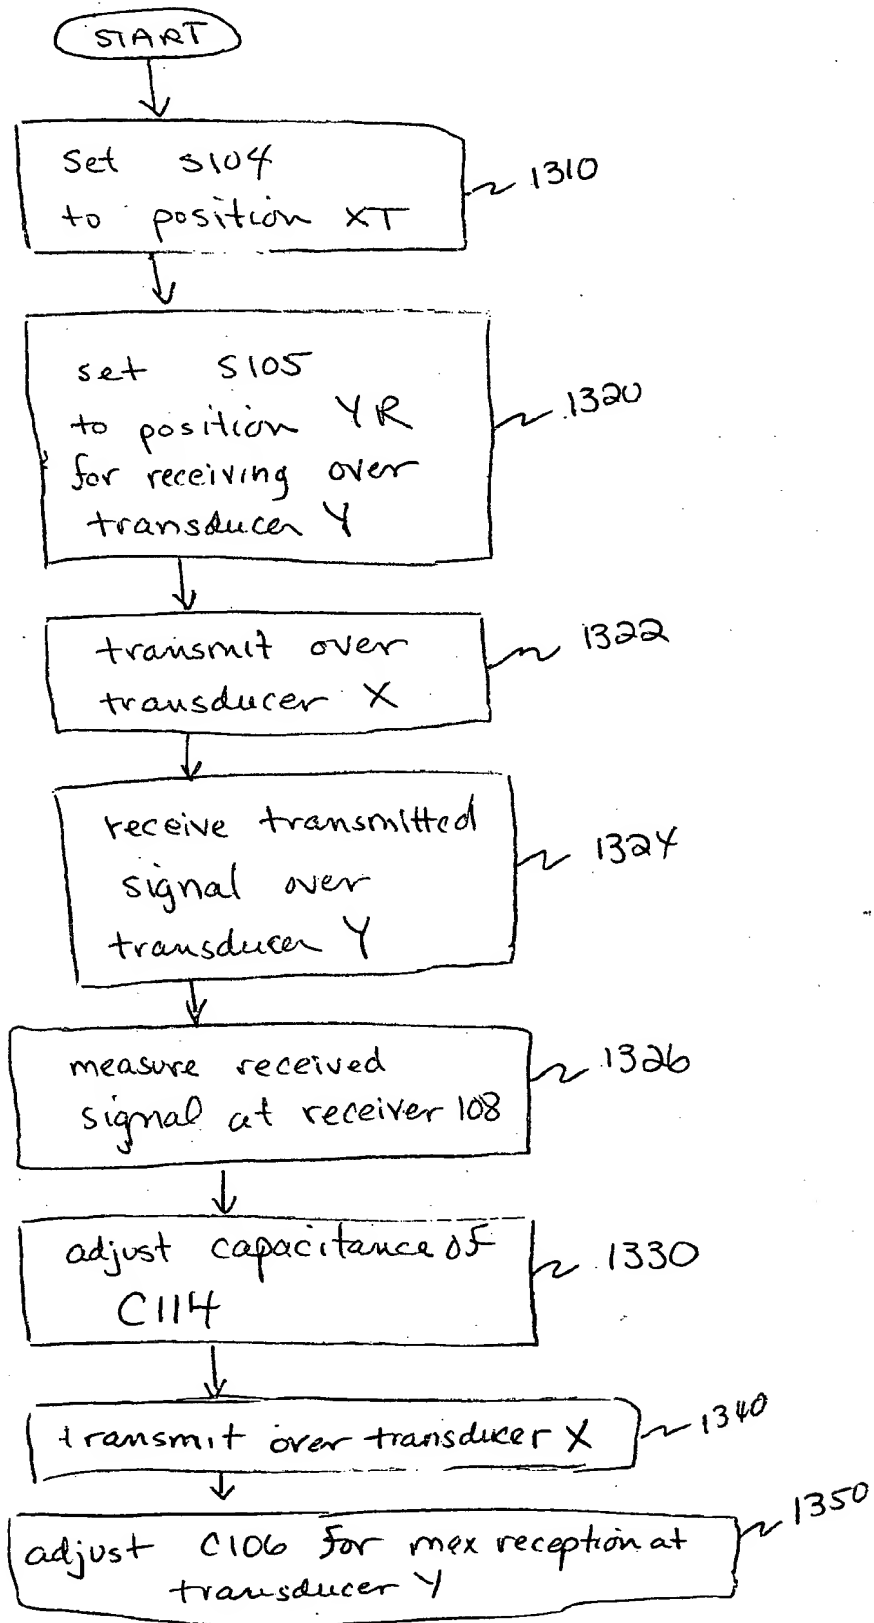 START
set S104
to position XT
1310
set S105
to position YR
for receiving over
transducer Y
1320
transmit over
transducer X
1322
receive transmitted
signal over
transducer Y
1324
measure received
signal at receiver 108
1326
adjust capacitance of
C114
1330
transmit over transducer X
1340
adjust C106 for mex reception at
transducer Y
1350